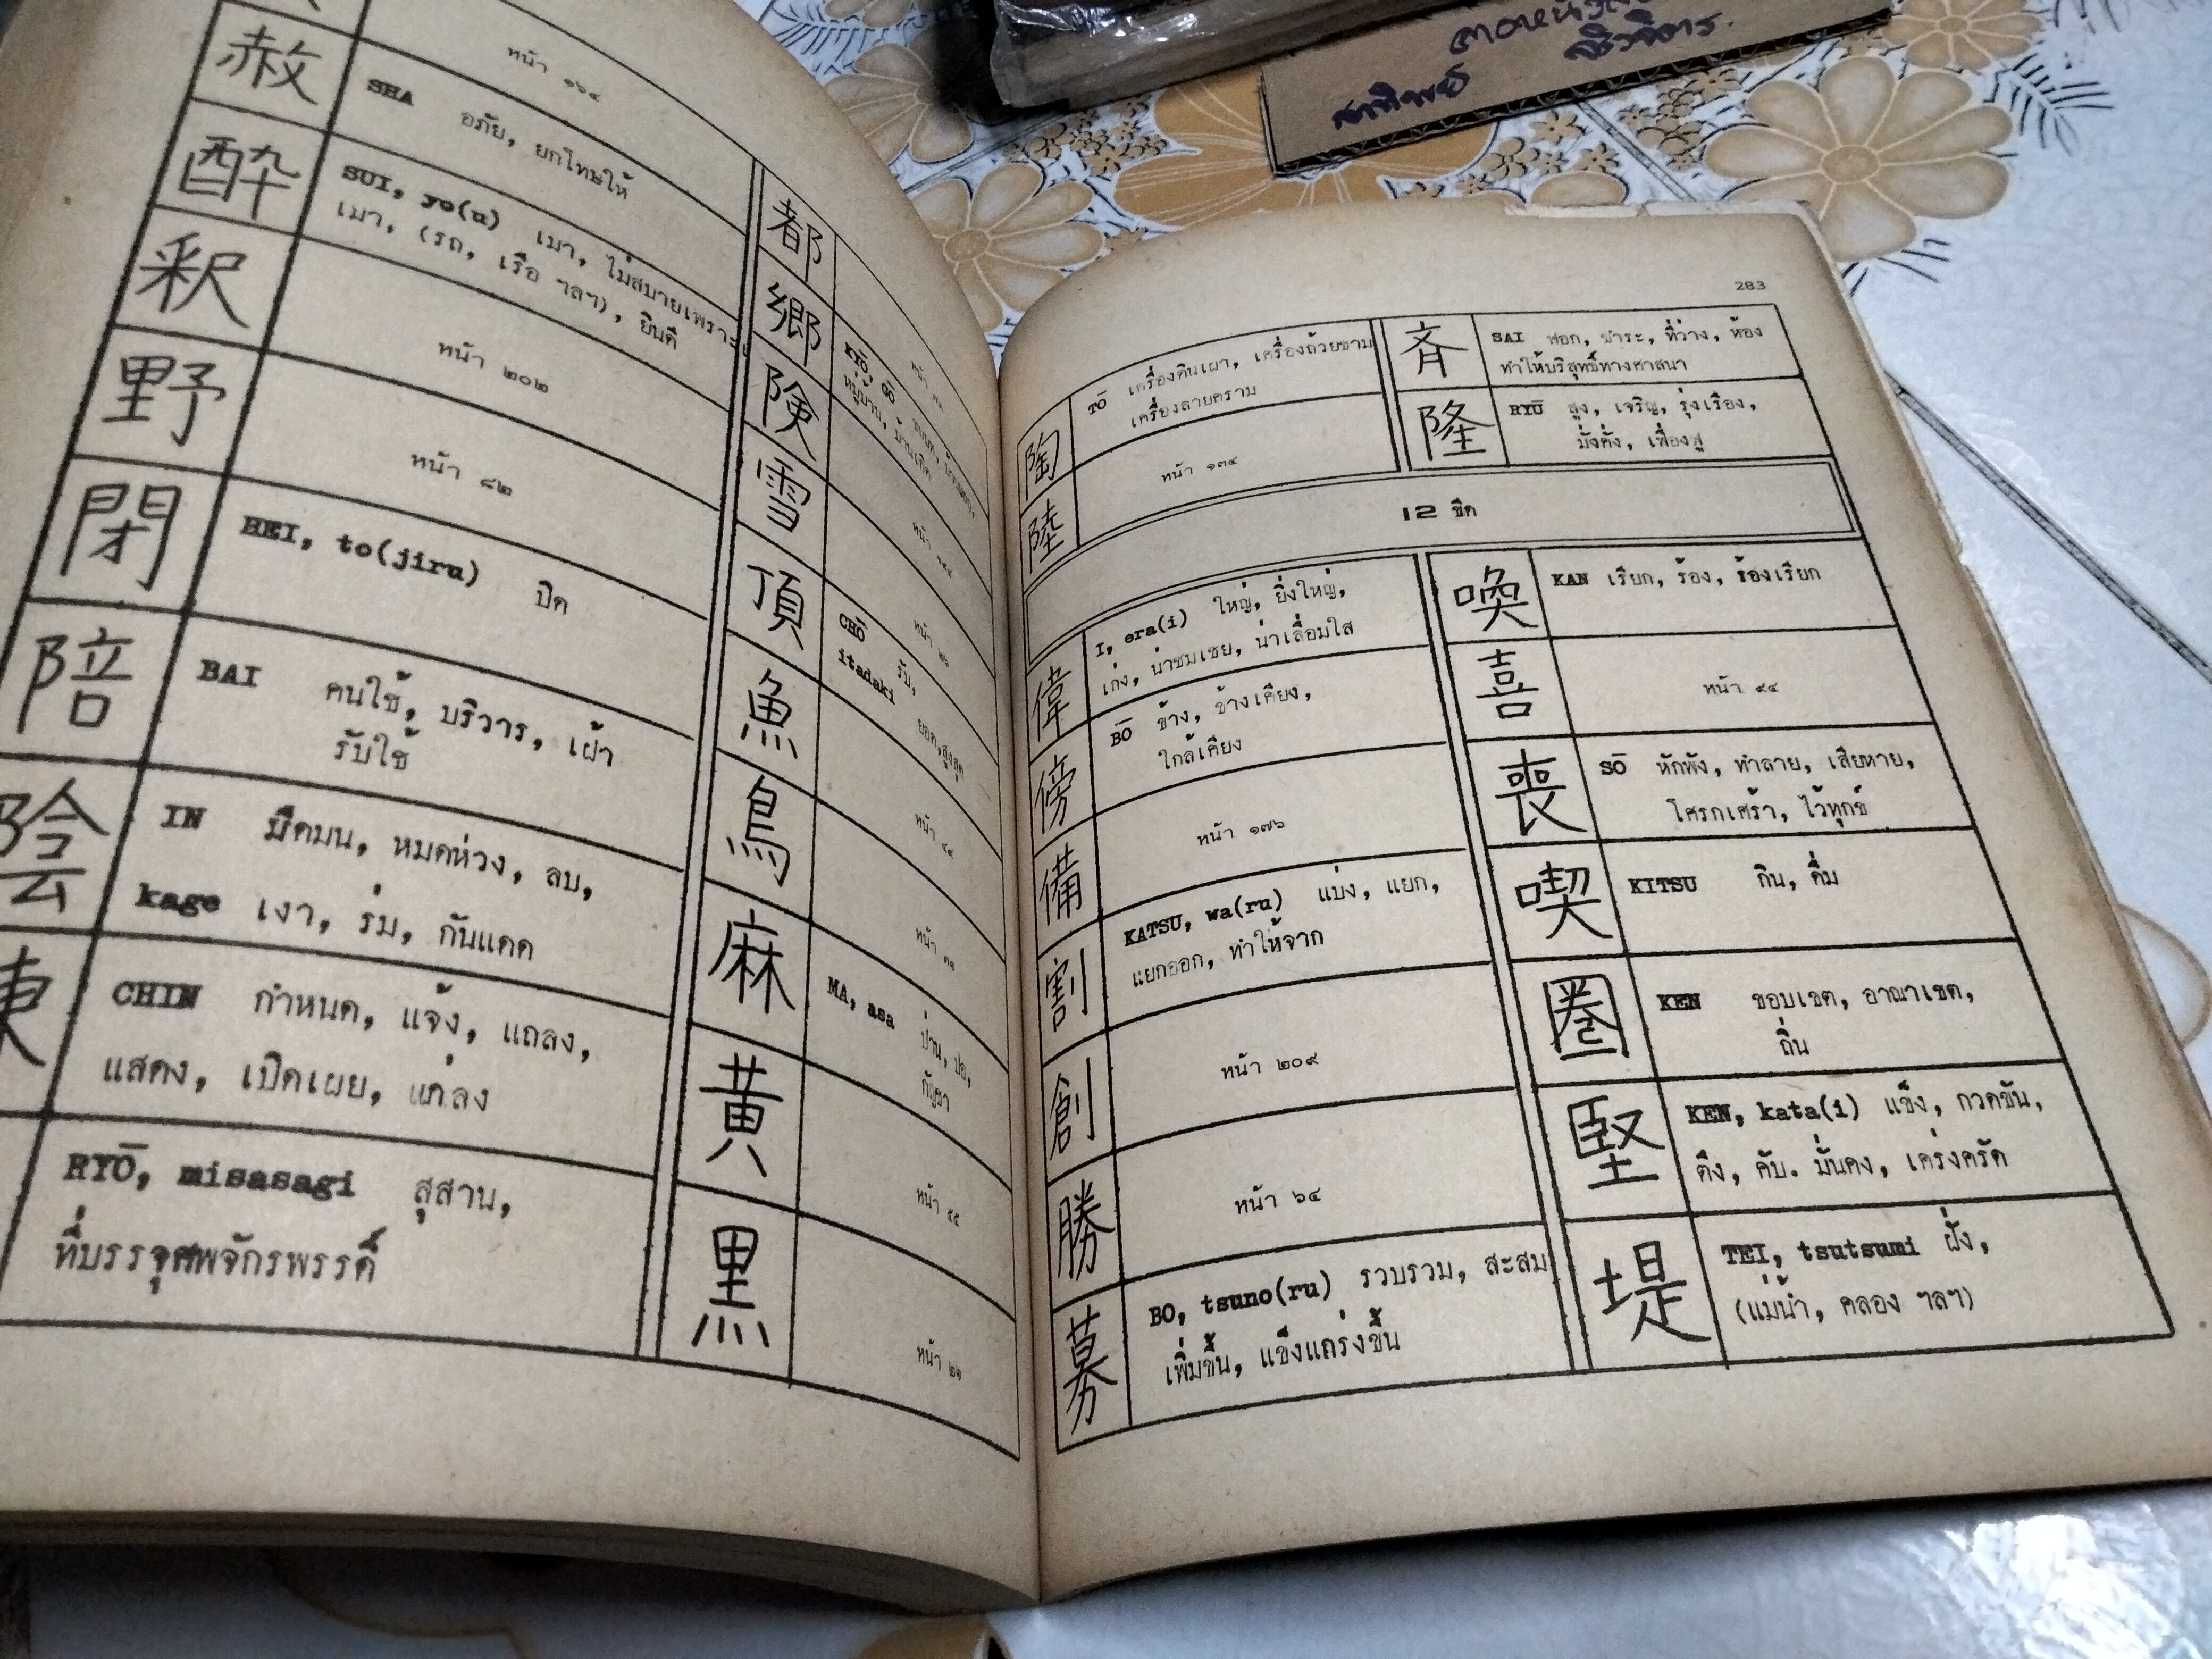 หน้า ๑๖๔
赦
SHA อภัย, ยกโทษให้
酔
SUI, yo(u) เมา, ไม่สบายเพราะ
เมา, (รถ, เรือ ฯลฯ), ยินดี
釈
หน้า ๒๐๒
野
หน้า ๘๒
閉
HEI, to(jiru) ปิด
陪
BAI คนใช้, บริวาร, เฝ้า
รับใช้
陰
IN มืดมน, หมดห่วง, ลบ,
kage เงา, ร่ม, กันแดด
陳
CHIN กำหนด, แจ้ง, แถลง,
แสดง, เปิดเผย, แถลง
RYŌ, misasagi สุสาน,
ที่บรรจุศพจักรพรรดิ์
都
郷
KYŌ, GŌ ชนบท, บ้านนอก,
หมู่บ้าน, บ้านเกิด
険
雪
頂
CHŌ รับ,
itadaki ยอด,สูงสุด
魚
鳥
麻
MA, asa ป่าน, ปอ,
กัญชา
黄
黒
หน้า ๒๑
283
陶
TŌ เครื่องดินเผา, เครื่องถ้วยชาม
เครื่องลายคราม
陸
หน้า ๑๓๔
斉
SAI ฟอก, ชำระ, ที่ว่าง, ห้อง
ทำให้บริสุทธิ์ทางศาสนา
隆
RYŪ สูง, เจริญ, รุ่งเรือง,
มั่งคั่ง, เฟื่องฟู
12 ขีด
偉
I, era(i) ใหญ่, ยิ่งใหญ่,
เก่ง, น่าชมเชย, น่าเลื่อมใส
傍
BŌ ข้าง, ข้างเคียง,
ใกล้เคียง
備
หน้า ๑๗๖
割
KATSU, wa(ru) แบ่ง, แยก,
แยกออก, ทำให้จาก
創
หน้า ๒๐๙
勝
หน้า ๖๔
募
BO, tsuno(ru) รวบรวม, สะสม
เพิ่มขึ้น, แข็งแกร่งขึ้น
喚
KAN เรียก, ร้อง, ร้องเรียก
喜
หน้า ๙๔
喪
SŌ หักพัง, ทำลาย, เสียหาย,
โศรกเศร้า, ไว้ทุกข์
喫
KITSU กิน, ดื่ม
圏
KEN ขอบเขต, อาณาเขต,
ถิ่น
堅
KEN, kata(i) แข็ง, กวดขัน,
ตึง, คับ. มั่นคง, เคร่งครัด
堤
TEI, tsutsumi ฝั่ง,
(แม่น้ำ, คลอง ฯลฯ)